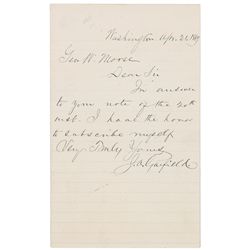 Washington Apr. 21, 189
Geo W. Moose
Dear Sir
In answer
to your note of the 20th
inst. I have the honor
to subscribe myself
Very Truly Yours
J. A. Garfield